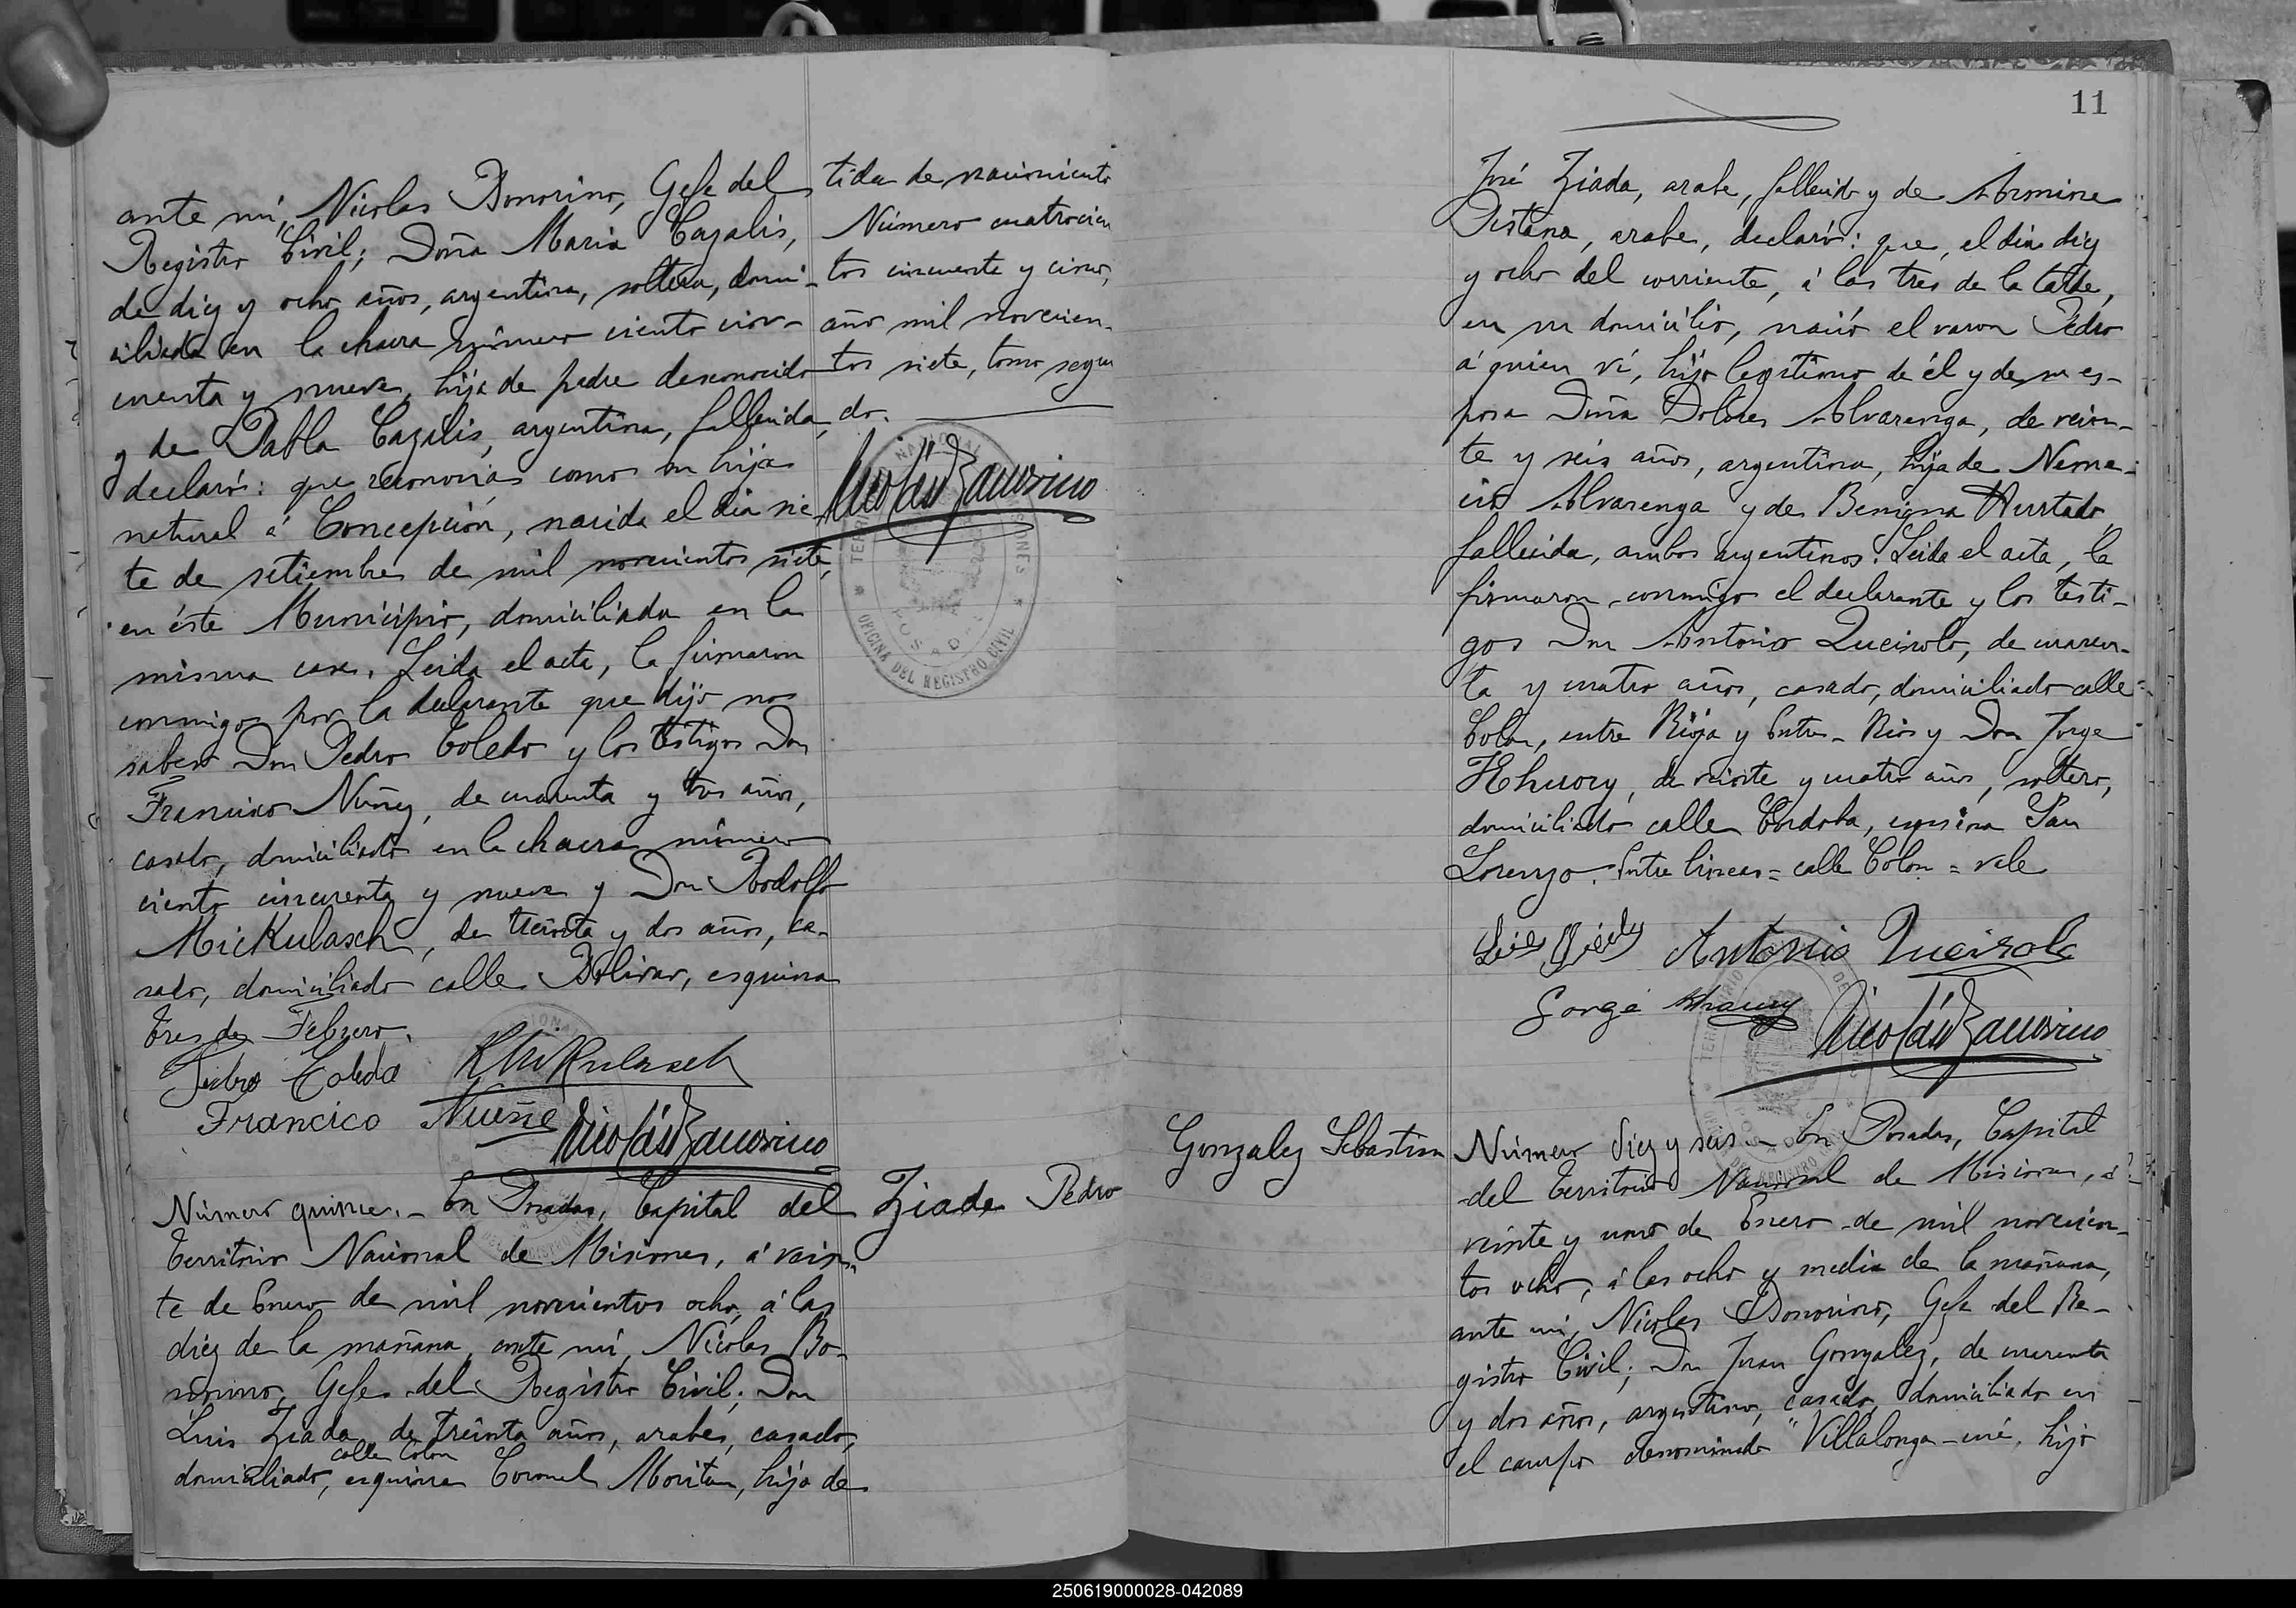 ante mí, Nicolas Bonorino, Gefe del
Registro Civil; Doña Maria Cazalis,
de diez y ocho años, argentina, soltera, domi-
ciliada en la chacra número ciento cin-
cuenta y nueve, hija de padre desconocido
y de Pabla Cazalis, argentina, fallecida,
declaró: que reconocia como su hija
natural á Concepción, nacida el dia sie-
te de setiembre de mil novecientos siete,
en éste Municipio, domiciliada en la
misma casa. Leida el acta, la firmaron
conmigo por la declarante que dijo no
saber Don Pedro Toledo y los testigos Don
Francisco Nuñez, de cuarenta y tres años,
casado, domiciliado en la chacra número
ciento cincuenta y nueve y Don Rodolfo
Mickulasch, de treinta y dos años, ca-
sado, domiciliado calle Bolivar, esquina
Tres de Febrero.
Pedro Toledo
Francico Nueñe
Nicolás Bonorino
Número quince. - En Posadas, Capital del
Territorio Nacional de Misiones, á vein-
te de Enero de mil novecientos ocho, á las
diez de la mañana, ante mí, Nicolas Bo-
norino, Gefe del Registro Civil; Don
Luis Ziada, de treinta años, arabe, casado,
calle Colon
domiciliado, esquina Coronel Moritan, hijo de
tida de nacimiento
Número cuatrocien
tos cincuenta y cinco,
año mil novecien-
tos siete, tomo segun
do.
Nicolás Bonorino
OFICINA DEL REGISTRO CIVIL
Ziade Pedro
11
José Ziada, arabe, fallecido y de Armine
Pistana, arabe, declaró: que, el dia diez
y ocho del corriente, á las tres de la tarde,
en su domicilio, nació el varon Pedro
á quien ví, hijo legitimo de él y de su es-
posa Doña Dolores Alvarenga, de vein-
te y seis años, argentina, hija de Neme-
cio Alvarenga y de Benigna Hurtado,
fallecida, ambos argentinos. Leida el acta, la
firmaron conmigo el declarante y los testi-
gos Don Antonio Queirolo, de cuaren-
ta y cuatro años, casado, domiciliado calle
Colon, entre Rioja y Entre-Rios y Don Jorge
Khuory, de veinte y cuatro años, soltero,
domiciliado calle Cordoba, esquina San
Lorenzo. Entre lineas = calle Colon = vale
Antonio Queirolo
Gorge
Nicolás Bonorino
Gonzalez Sebastian
Número diez y seis - En Posadas, Capital
del Territorio Nacional de Misiones, á
veinte y uno de Enero de mil novecien-
tos ocho, á las ocho y media de la mañana,
ante mí, Nicolas Bonorino, Gefe del Re-
gistro Civil; Don Juan Gonzalez, de cuarenta
y dos años, argentino, casado, domiciliado en
el campo denominado "Villalonga-cué, hijo
250619000028-042089